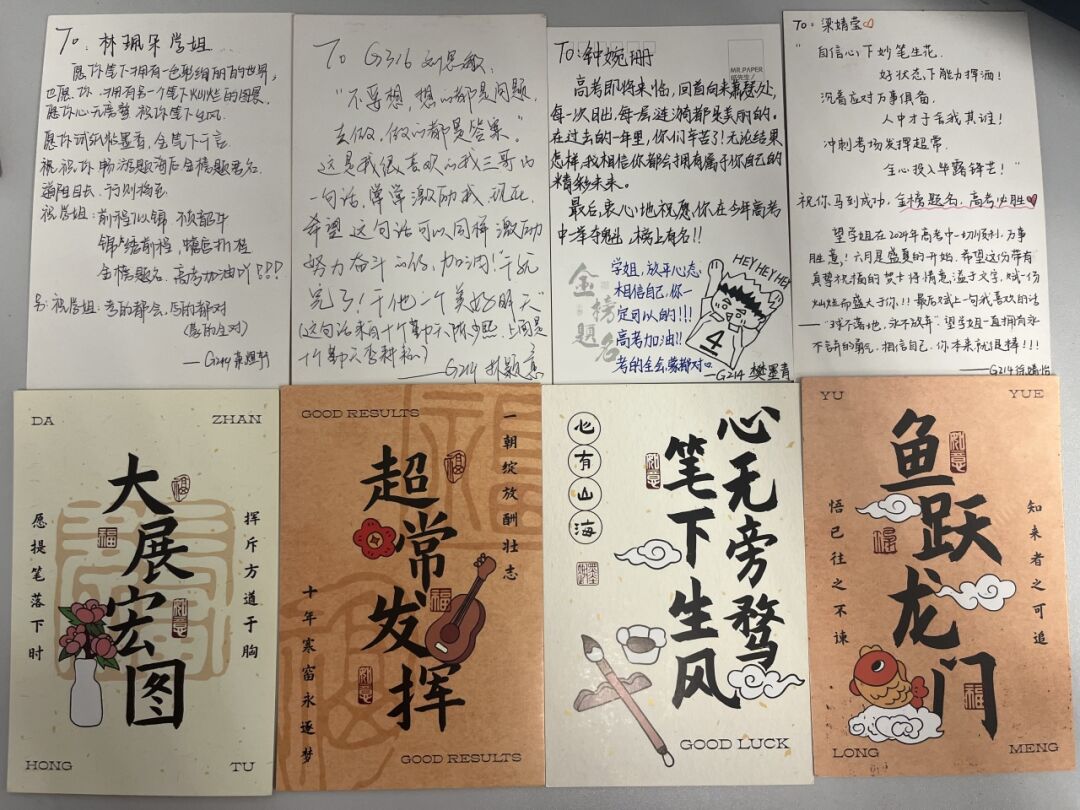 To: 林珮朵学姐
愿你笔下拥有一色彩绚丽的世界,
也愿你拥有另一个笔下灿烂的图景.
愿你心无旁骛 被你笔下生风.
愿你试纸粘墨香, 金笔下千言.
祝你 畅游题海后金榜题名.
道阻且长, 行则将至
祝学姐: 前程似锦
金榜题名 高考加油!!!
另: 祝学姐: 考的都会, 蒙的都对
(蒙的全对)
To G316 刘思敏:
"不要想, 想的都是问题,
去做, 做的都是答案."
这是我很喜欢的我三哥的
一句话, 常常激励我, 现在,
希望这句话可以同样激励
努力奋斗的你, 加油! 干就
完了! 干他一个美好明天
(这句话来自十个勤天陈少熙, 上面是
十个勤天李耕耘)
——G214 林颢熹
To: 钟婉珊
MR.PAPER
高考即将来临, 回首向来萧瑟处,
每一次日出, 每一层涟漪都是美丽的.
在过去的一年里, 你们辛苦了! 无论结果
怎样, 我相信你都会拥有属于你自己的
精彩未来。
最后, 衷心地祝愿, 你在今年高考
中举夺魁, 榜上有名!!
金榜题名
学姐, 放平心态
相信自己, 你一
定可以的!!!
高考加油!!
考的全会, 蒙都对.
HEY HEY HEY HEY
4
——G214 樊墨青
To: 梁婧莹
"自信心下妙笔生花,
好状态下能力挥洒!
沉着应对万事俱备,
人中才子舍我其谁!
冲刺考场发挥超常,
全心投入毕露锋芒!"
祝你马到成功, 金榜题名, 高考必胜
望学姐在2024年高考中一切顺利, 万事
胜意! 六月是盛夏的开始, 希望这份带有
真挚祝福的贺卡将情意溢于文字, 赋一份
灿烂而盛大于你!! 最后赋上一句我喜欢的话
——"球不落地, 永不放弃" 望学姐一直拥有永
不言弃的勇气, 相信自己, 你本来就很棒!!!
DA ZHAN
大展宏图
愿提笔落下时
挥斥方遒于胸
HONG TU
GOOD RESULTS
超常发挥
一朝绽放酬壮志
十年寒窗永逐梦
GOOD RESULTS
心有山海
心无旁骛
笔下生风
GOOD LUCK
YU YUE
鱼跃龙门
悟已往之不谏
知来者之可追
LONG MENG